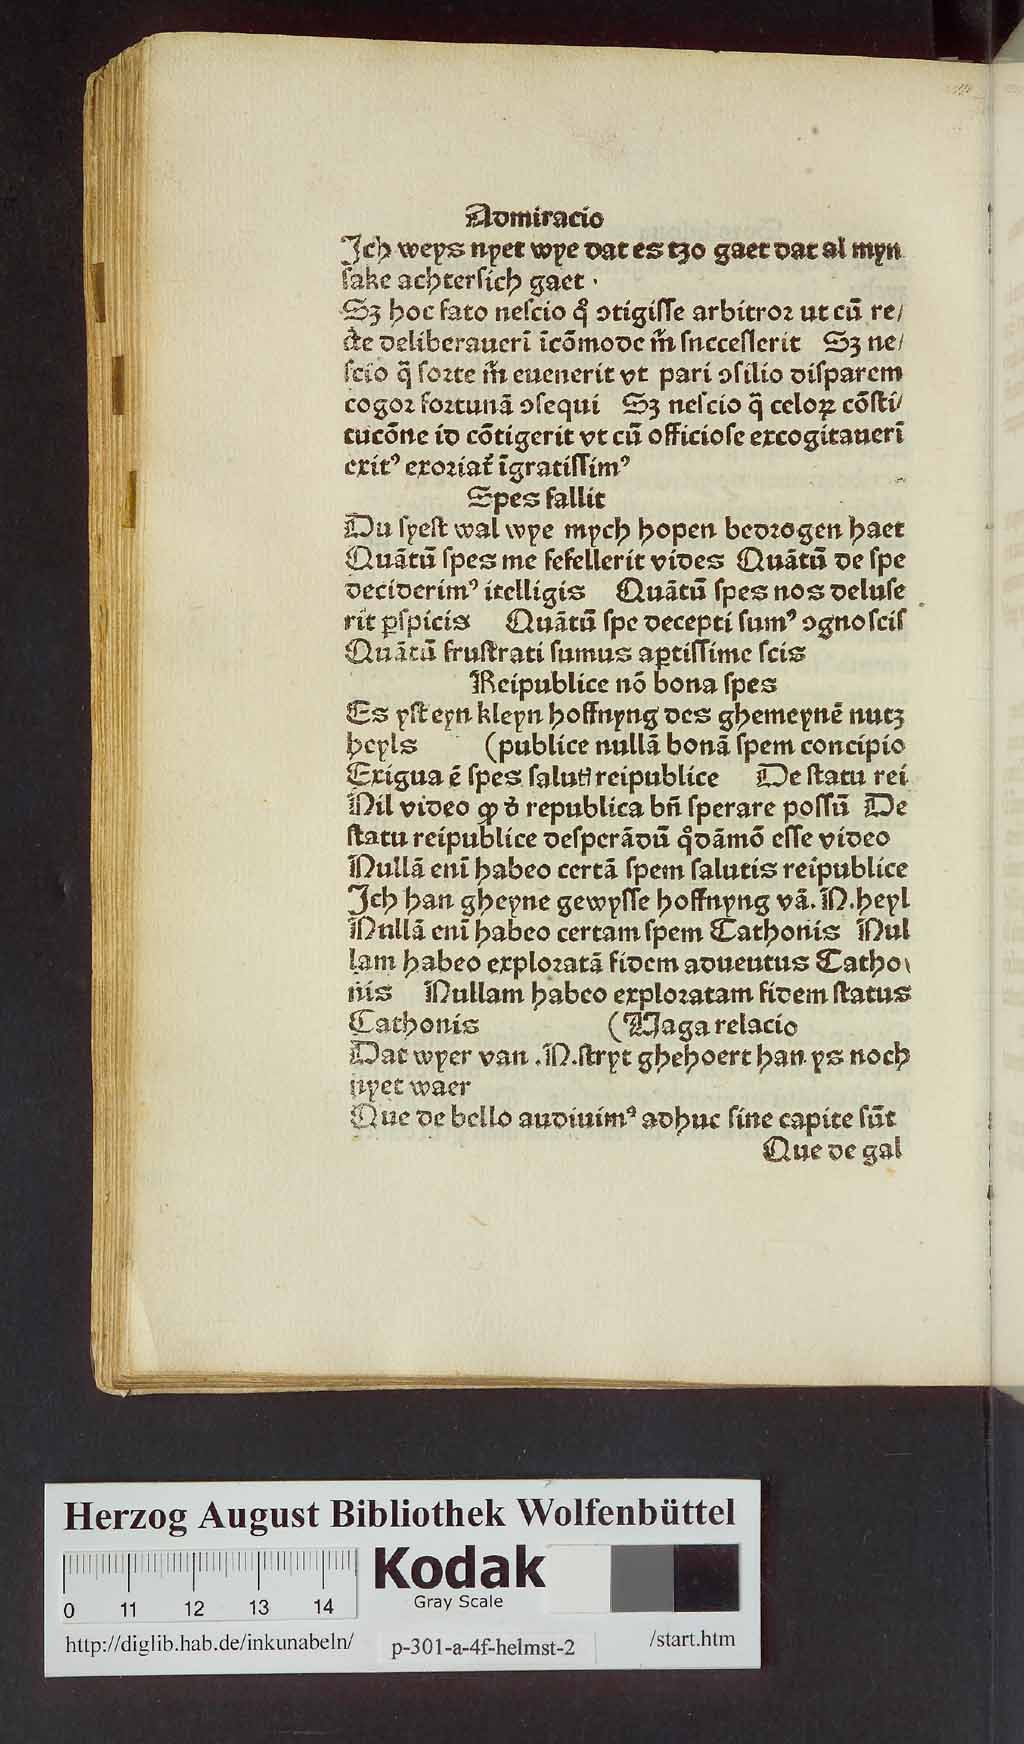 Admiracio
Jch weys nyet wye dat es tzo gaet dat al myn
sake achtersich gaet ·
Sꝫ hoc fato nescio qͦ ꝯtigisse arbitror ut cū re/
cte deliberauerī īcōmode m̄ snccesserit Sꝫ ne/
scio q̄ sorte m̄ euenerit vt pari ꝯsilio disparem
cogor fortunā ꝯsequi Sꝫ nescio q̄ celoꝝ cōsti/
tucōne id cōtigerit vt cū officiose excogitauerī
exitꝰ exoriat᷑ īgratissimꝰ
Spes fallit
Du syest wal wye mych hopen bedrogen haet
Quātū spes me fefellerit vides Quātū de spe
deciderimꝰ itelligis Quātū spes nos deluse
rit ꝑspicis Quātū spe decepti sumꝰ ꝯgnoscis
Quātū frustrati sumus aꝑtissime scis
Reipublice nō bona spes
Es yst eyn kleyn hoffnyng des ghemeynē nutz
heyls (publice nullā bonā spem concipio
Exigua ē spes saluti reipublice De statu rei
Nil video ꝙ d̓ republica bn̄ sperare possū De
statu reipublice desperādū qͦdāmō esse video
Nullā enī habeo certā spem salutis reipublice
Jch han gheyne gewysse hoffnyng vā. N. heyl
Nullā enī habeo certam spem Cathonis Nul
lam habeo exploratā fidem aduentus Catho\
nis Nullam habeo exploratam fidem status
Cathonis (Vaga relacio
Dat wyer van .N. stryt ghehoert han ys noch
nyet waer
Que de bello audiuimꝰ adhuc sine capite sūt
Que de gal
Herzog August Bibliothek Wolfenbüttel
Kodak
Gray Scale
0 11 12 13 14
http://diglib.hab.de/inkunabeln/ p-301-a-4f-helmst-2 /start.htm